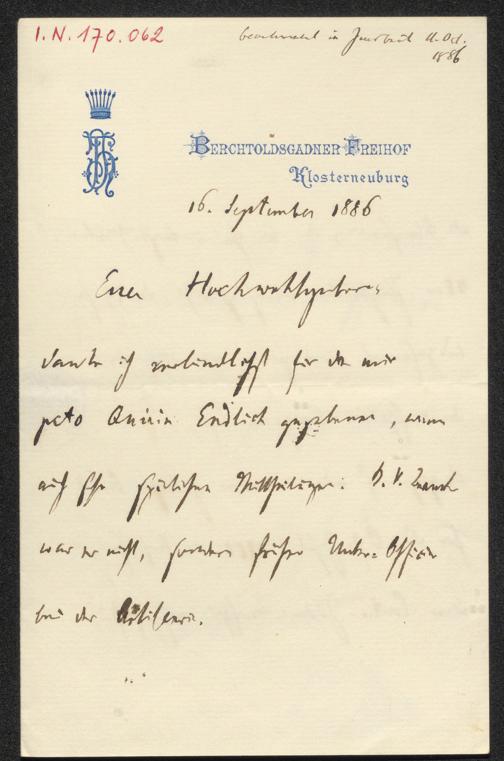 I.N. 170.062
beantwortet in 11. Oct.
1886
BERCHTOLDSGADNER FREIHOF
Klosterneuburg
16. September 1886
Euer Hochwohlgeboren
danke ich verbindlichst für die mir
pcto Quirin Endlich gegebenen, wenn
auch sehr spärlichen Mittheilungen.
war er nicht, sondern früher Unter-Officier
bei der Artillerie.